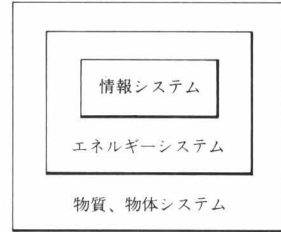 情報システム
エネルギーシステム
物質、物体システム